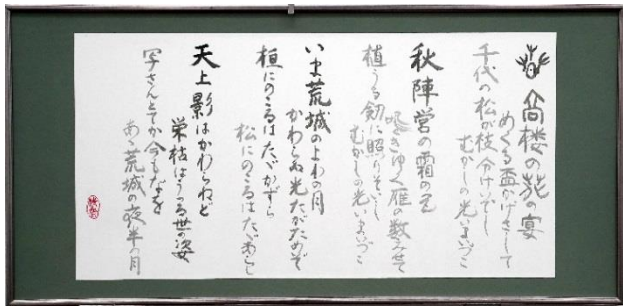 春高楼の花の宴
めぐる盃かげさして
千代の松が枝分けいでし
むかしの光いまいづこ
秋陣営の霜の色
鳴きゆく雁の数みせて
植うる剣に照りそいし
むかしの光いまいづこ
いま荒城のよわの月
かわらぬ光たがためぞ
垣にのこるはたゞかずら
松にのこるはたゞあらし
天上影はかわらねど
栄枯はうつる世の姿
写さんとてか今もなを
あゝ荒城の夜半の月